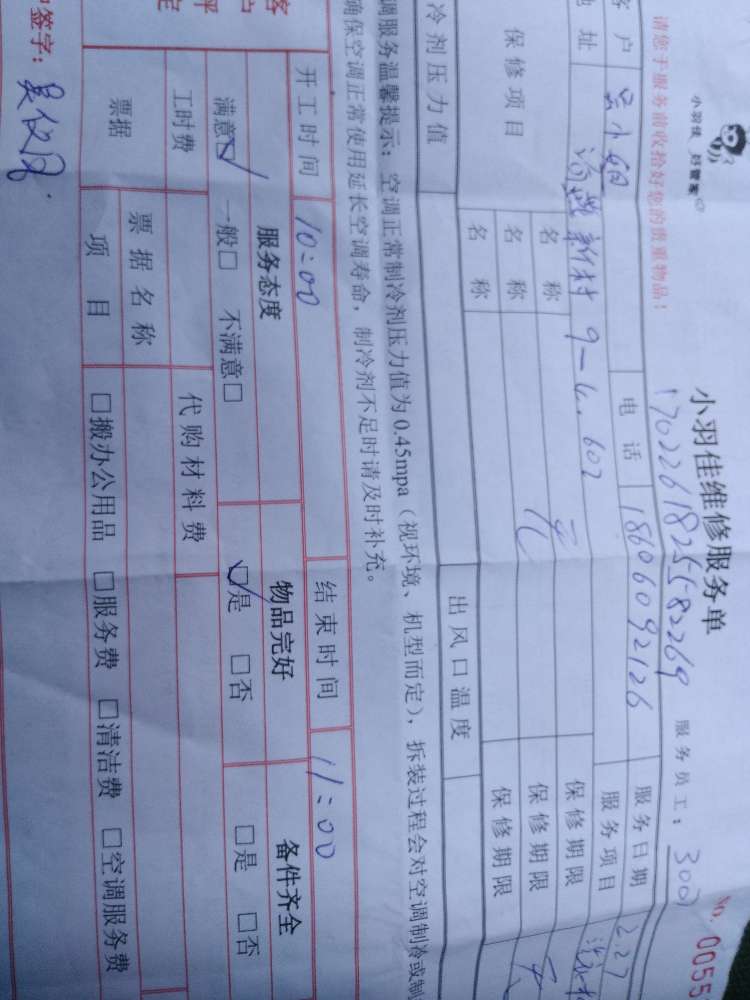 小羽佳 好管家
小羽佳维修服务单
No. 0055
请您于服务前收拾好您的贵重物品！
17022618255582269
服务员工：3007
客户 吴小姐 电话 18606092126 服务日期 2.27
地址 新村 9-4. 602 服务项目
保修项目 名称 保修期限
名称 无 保修期限 无
名称 保修期限
冷剂压力值 出风口温度
调服务温馨提示：空调正常制冷剂压力值为0.45mpa（视环境、机型而定），拆装过程会对空调制冷或制
确保空调正常使用延长空调寿命，制冷剂不足时请及时补充。
开工时间 10:00 结束时间 11:00
服务态度 物品完好 备件齐全
满意☑ 一般□ 不满意□ ☑是 □否 □是 □否
工时费 代购材料费
票据 票据名称
项目 □搬办公用品 □服务费 □清洁费 □空调服务费
签字：